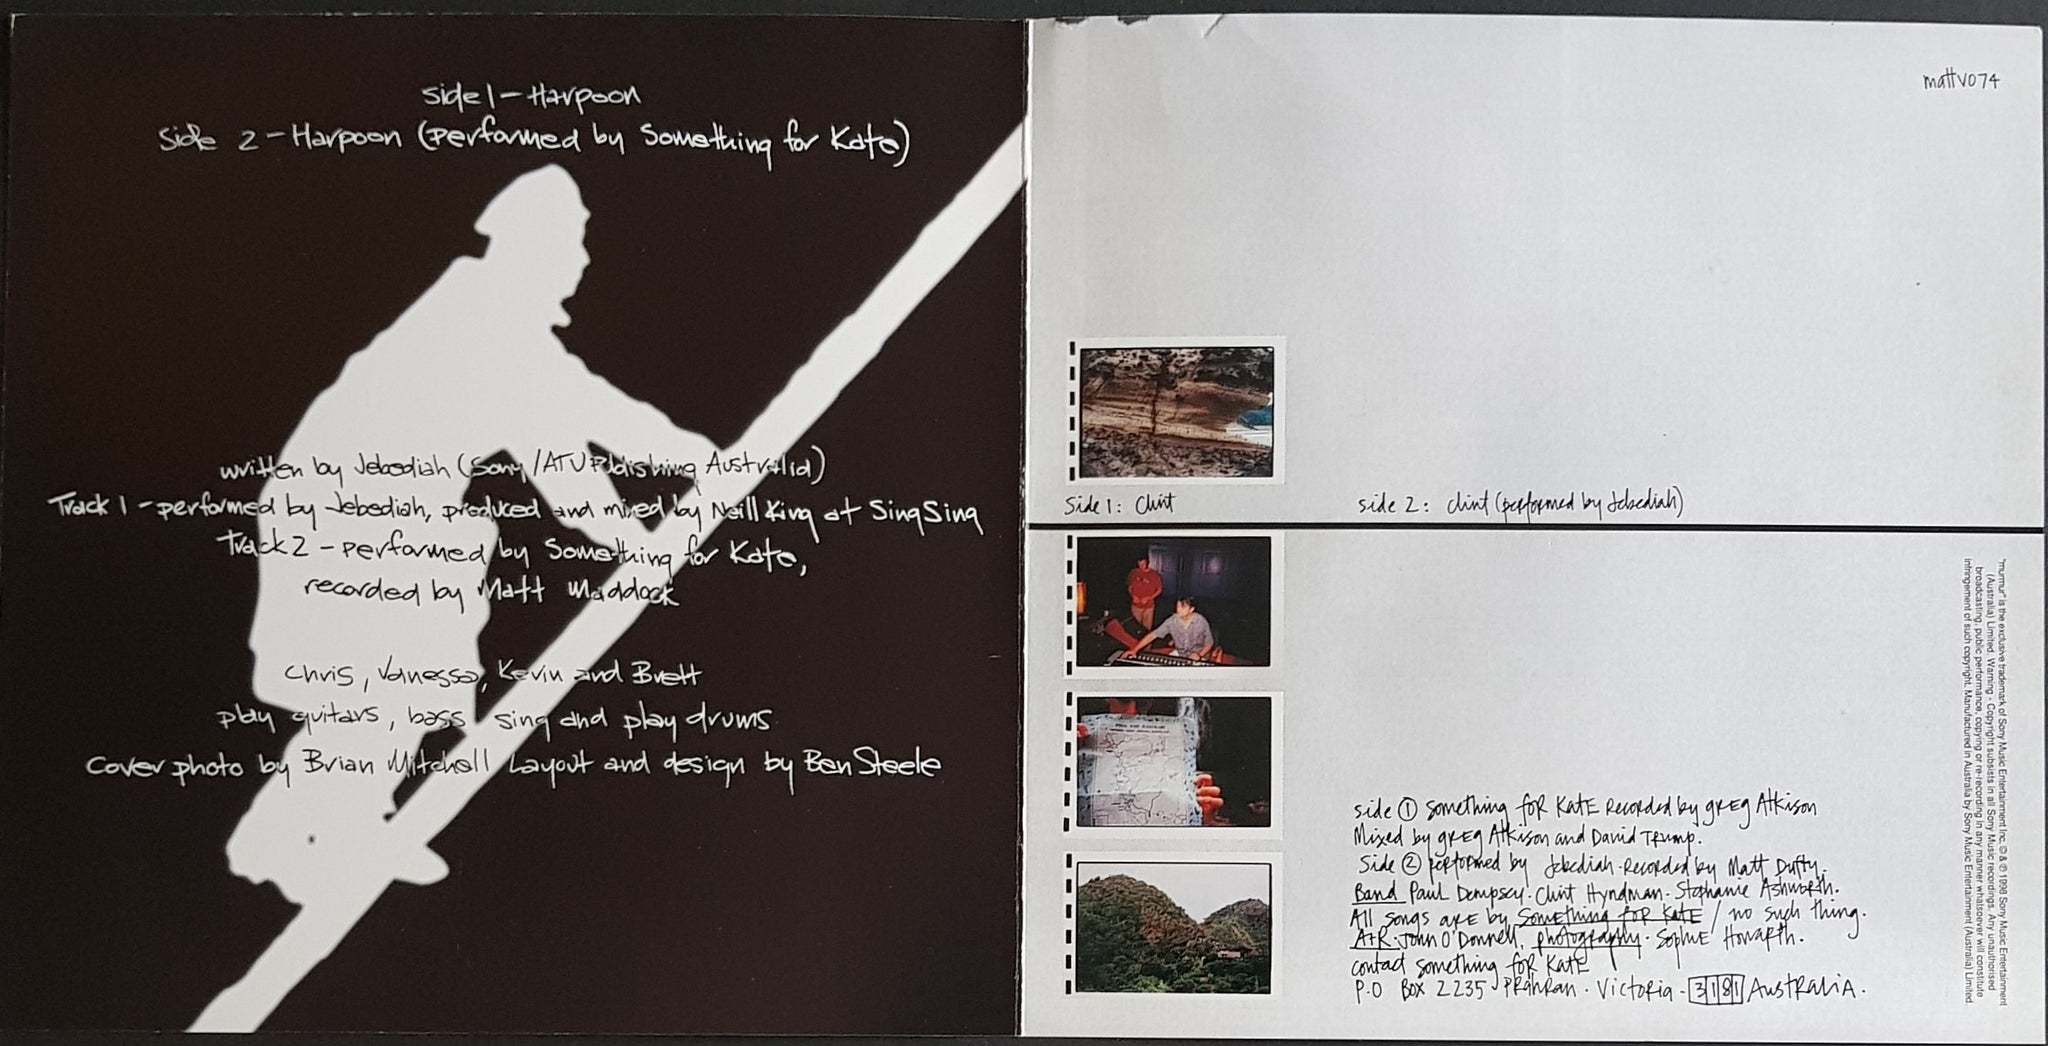 Side 1 - Harpoon
Side 2 - Harpoon (performed by Something for Kate)
written by Jebediah (Sony/ATV Publishing Australia)
Track 1 - performed by Jebediah, produced and mixed by Neill King at Sing Sing
Track 2 - performed by Something for Kate,
recorded by Matt Maddock
Chris, Vanessa, Kevin and Brett
play guitars, bass, sing and play drums
cover photo by Brian Mitchell Layout and design by Ben Steele
mattv074
Side 1: Clint
side 2: clint (performed by Jebediah)
side 1 something foR KatE Recorded by gREg Atkison
Mixed by gREg Atkison and David TRump.
Side 2 peRfoRmed by Jebediah. Recorded by Matt Dufty.
Band Paul Dempsey. Clint Hyndman. Stephanie AshwoRth.
All songs aRE by Something foR KatE / no such thing.
A+R. John O'Donnell, photography. SophiE HowaRth.
contact something foR KatE
P.O Box 2235 PRahRan. VictoRia. 3181 AustRaliA.
"murmur" is the exclusive trademark of Sony Music Entertainment Inc. © & ℗ 1998 Sony Music Entertainment
(Australia) Limited. Warning - Copyright subsists in all Sony Music recordings. Any unauthorised
broadcasting, public performance, copying or re-recording in any manner whatsoever will constitute
infringement of such copyright. Manufactured in Australia by Sony Music Entertainment (Australia) Limited